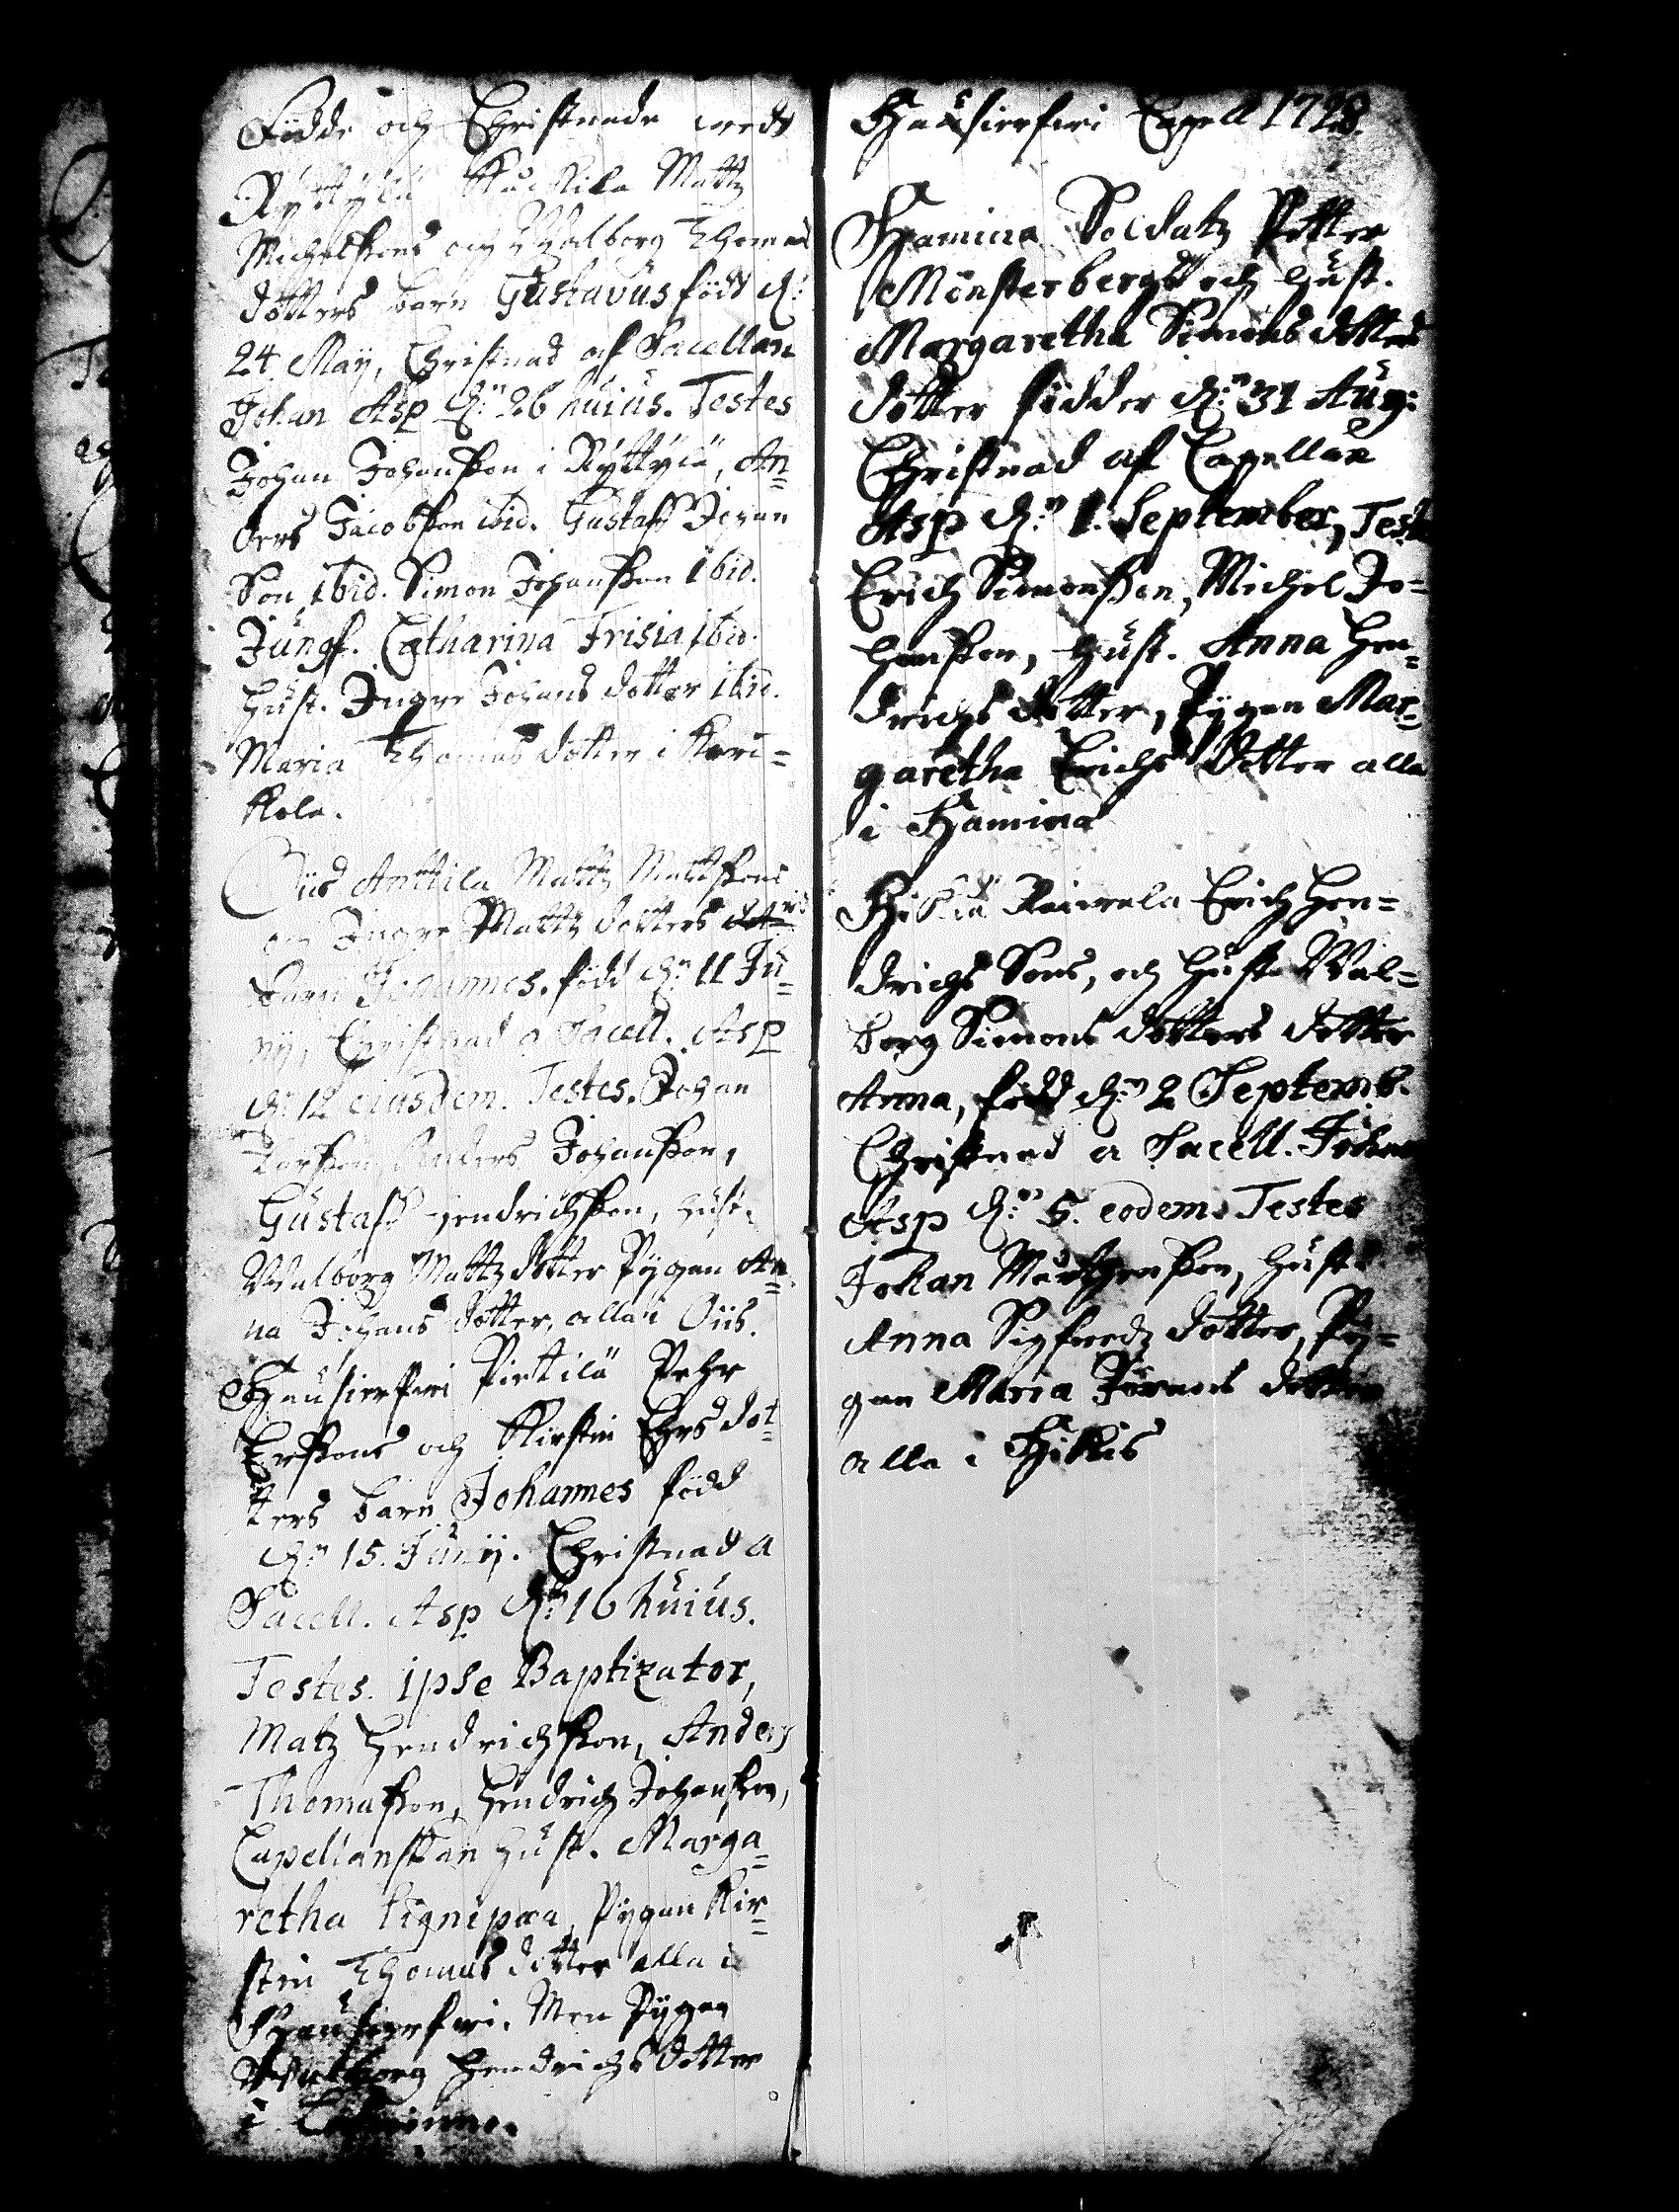 Födde och Christnade wedh
Ryttylä Kuckila Mattz
Michelssons och Walborg Thomas
dotters barn Gustavus född d:
24 Maÿ, Christnad af Sacellan
Johan Asp d:n 26 huius. Testes
Johan Johansson i Ryttylä, An=
ders Jacobsson ibid. Gustaff Johan
Son ibid. Simon Johansson ibid.
Jungf. Catharina Frisia ibid.
Hust. Ingre Johans dotter ibid.
Maria Thomas dotter i Kari=
kola.
Oiis Anttila Mattz Mattssons
och Ingre Mattz dotters
barn Johannes, född d:n 11 Ju=
nij, Christnad a Sacell. Asp
d:n 12 eiusdem. Testes. Johan
Larsson, Anders Johansson,
Gustaff Hendrichsson, Hust.
Walborg Mattz dotter Pygan An=
na Johans dotter, alla i Oiis.
Hausierferi Piettilä Pehr
Ersons och Kirstin Ehrs dot=
ters barn Johannes född
d:n 15. Junij. Christnad a
Sacell. Asp d:n 16 huius.
Testes. ipse Baptizator,
Matz Hendrichsson, Anders
Thomasson, Hendrich Johansson,
Capellanskan Hust. Marga=
retha Lignipæa, Pygan Kir=
stin Thomas dotter alla i
Hausierferi. Men Pygan
Walborg Hendrichs dotter
i
Hausierferi Capell 1728.
Hamina Soldatz Petter
Mönsterbergs och Hust.
Margaretha Simons dotters
dotter födder d:n 31 Aug:
Christnad af Capellan
Asp d:n 1. September, Test
Erich Simonsson, Michel Jo=
hansson, Hust. Anna Hen=
drichs dotter, Pygan Mar=
garetha Erichs dotter alla
i Hamina
Hikiä Raiwala Erich Hen=
drichs Sons, och Hust. Wal=
borg Simons dotters dotter
Anna, född d:n 2 Septemb.
Christnad a Sacell. Johan
Asp d:n 5. eodem. Testes
Johan Mårthensson, Hust.
Anna Sigfredz dotter, Py=
gan Maria Jörans dotter
alla i Hikis